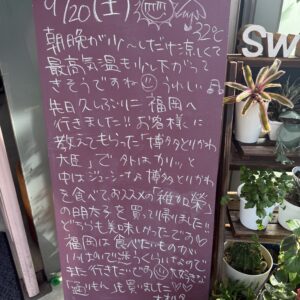 9/20(土) 32℃
朝晩が少〜しだけ涼しくて
最高気温も少し下がって
きそうですね うれしい♪
先日久しぶりに福岡へ
行きました!! お客様に
教えてもらった「博多とりかわ
大臣」で外はカリッと
中はジューシーな博多とりかわ
を食べて、おススメの「雅加榮」
の明太子を買って帰りました!!
どちらも美味しかったでの♡
福岡は食べたいものが
ので
また行きたいでの 大好きな
も買いました♡
SW